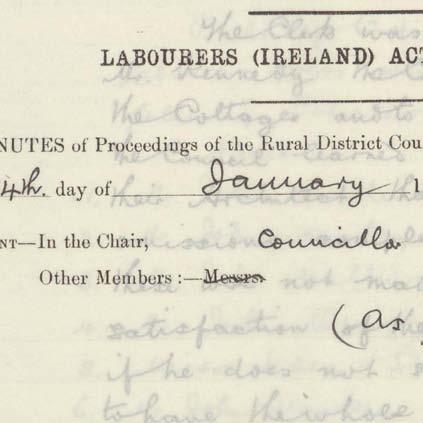 LABOURERS (IRELAND) ACT
NUTES of Proceedings of the Rural District Cou
4th. day of January 1
NT—In the Chair, Councillo
Other Members :—Messrs.
(as
The Clerk was
Mr. Kennedy the C
the Cottages and to
the Council
their Architect tha
these were not mad
satisfaction of the
if he does not s
to have the whole